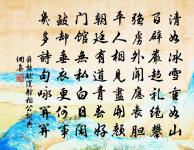 清如冰雪重如山
百辟嚴趨禮絕攀
強虜外聞應喪膽
平人相見盡開顏
朝廷有道青春好
門館無私白日閒
致却垂衣更何事
幾多詩句詠關關